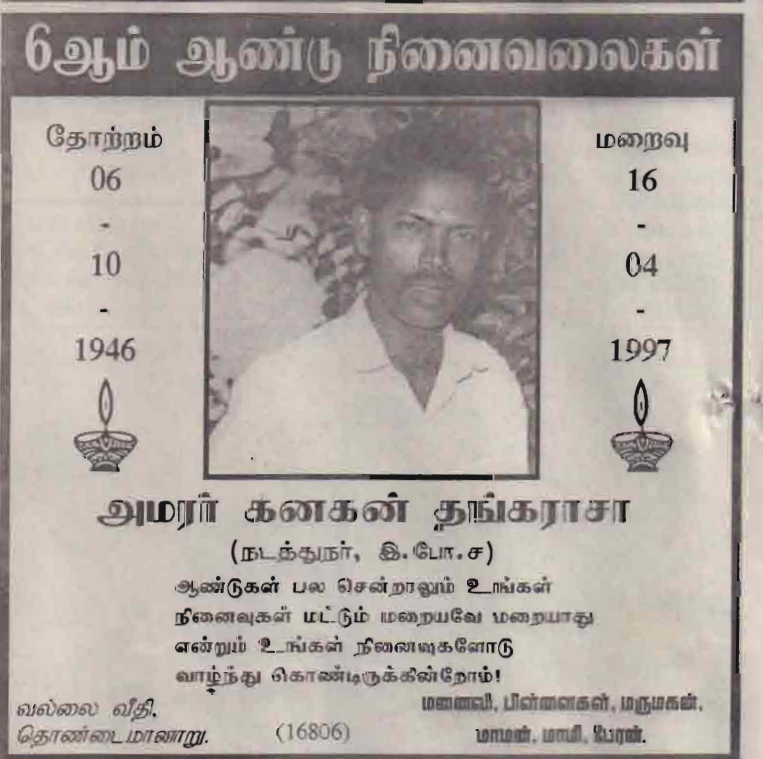 6ஆம் ஆண்டு நினைவலைகள்
தோற்றம்
06
-
10
-
1946
மறைவு
16
-
04
-
1997
அமரர் கனகன் தங்கராசா
(நடத்துநர், இ.போ.ச)
ஆண்டுகள் பல சென்றாலும் உங்கள்
நினைவுகள் மட்டும் மறையவே மறையாது
என்றும் உங்கள் நினைவுகளோடு
வாழ்ந்து கொண்டிருக்கின்றோம்!
வல்லை வீதி.
தொண்டைமானாறு.
(16806)
மனைவி, பிள்ளைகள், மருமகன்,
மாமன், மாமி, பேரன்.